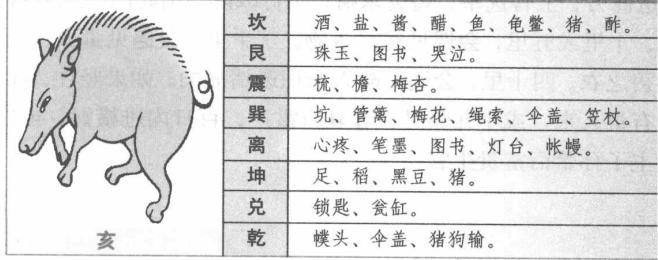 坎 酒、盐、酱、醋、鱼、龟鳖、猪、酢。
艮 珠玉、图书、哭泣。
震 梳、檐、梅杏。
巽 坑、管篱、梅花、绳索、伞盖、笠杖。
离 心疼、笔墨、图书、灯台、帐幔。
坤 足、稻、黑豆、猪。
兑 锁匙、瓮缸。
乾 幞头、伞盖、猪狗输。
亥